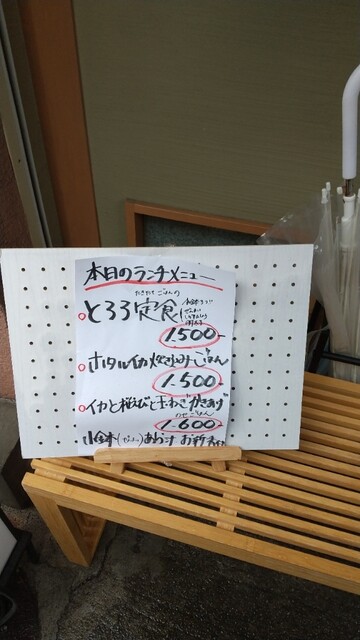 本日のランチメニュー
たきたてごはんの
とろろ定食
1.500-
ホタルイカ炊き込みごはん
1.500-
イカと桜えびと玉ねぎかきあげ
1.600
小鉢